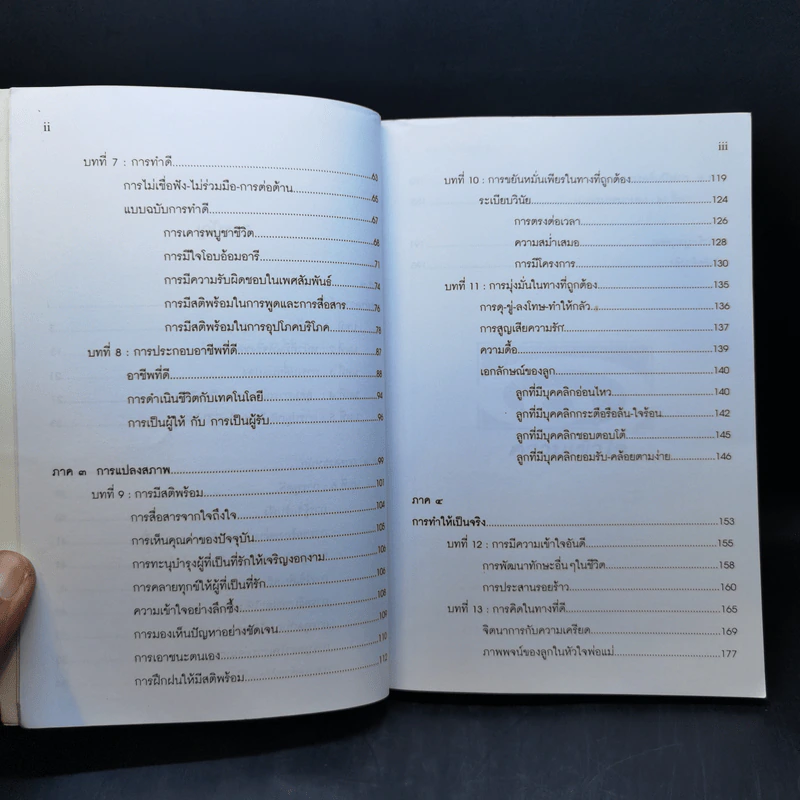 ii
บทที่ 7 : การทำดี 63
การไม่เชื่อฟัง-ไม่ร่วมมือ-การต่อต้าน 65
แบบฉบับการทำดี 67
การเคารพบูชาชีวิต 68
การมีใจโอบอ้อมอารี 71
การมีความรับผิดชอบในเพศสัมพันธ์ 74
การมีสติพร้อมในการพูดและการสื่อสาร 76
การมีสติพร้อมในการอุปโภคบริโภค 78
บทที่ 8 : การประกอบอาชีพที่ดี 87
อาชีพที่ดี 88
การดำเนินชีวิตกับเทคโนโลยี 94
การเป็นผู้ให้ กับ การเป็นผู้รับ 96
ภาค ๓ การแปลงสภาพ 99
บทที่ 9 : การมีสติพร้อม 101
การสื่อสารจากใจถึงใจ 104
การเห็นคุณค่าของปัจจุบัน 105
การทะนุบำรุงผู้ที่เป็นที่รักให้เจริญงอกงาม 106
การคลายทุกข์ให้ผู้ที่เป็นที่รัก 106
ความเข้าใจอย่างลึกซึ้ง 108
การมองเห็นปัญหาอย่างชัดเจน 109
การเอาชนะตนเอง 110
การฝึกฝนให้มีสติพร้อม 112
iii
บทที่ 10 : การขยันหมั่นเพียรในทางที่ถูกต้อง 119
ระเบียบวินัย 124
การตรงต่อเวลา 126
ความสม่ำเสมอ 128
การมีโครงการ 130
บทที่ 11 : การมุ่งมั่นในทางที่ถูกต้อง 135
การดุ-ขู่-ลงโทษ-ทำให้กลัว 136
การสูญเสียความรัก 137
ความดื้อ 139
เอกลักษณ์ของลูก 140
ลูกที่มีบุคคลิกอ่อนไหว 140
ลูกที่มีบุคคลิกกระตือรือล้น-ใจร้อน 142
ลูกที่มีบุคคลิกชอบตอบโต้ 145
ลูกที่มีบุคคลิกยอมรับ-คล้อยตามง่าย 146
ภาค ๔
การทำให้เป็นจริง 153
บทที่ 12 : การมีความเข้าใจอันดี 155
การพัฒนาทักษะอื่นๆในชีวิต 158
การประสานรอยร้าว 160
บทที่ 13 : การคิดในทางที่ดี 165
จิตนาการกับความเครียด 169
ภาพพจน์ของลูกในหัวใจพ่อแม่ 177